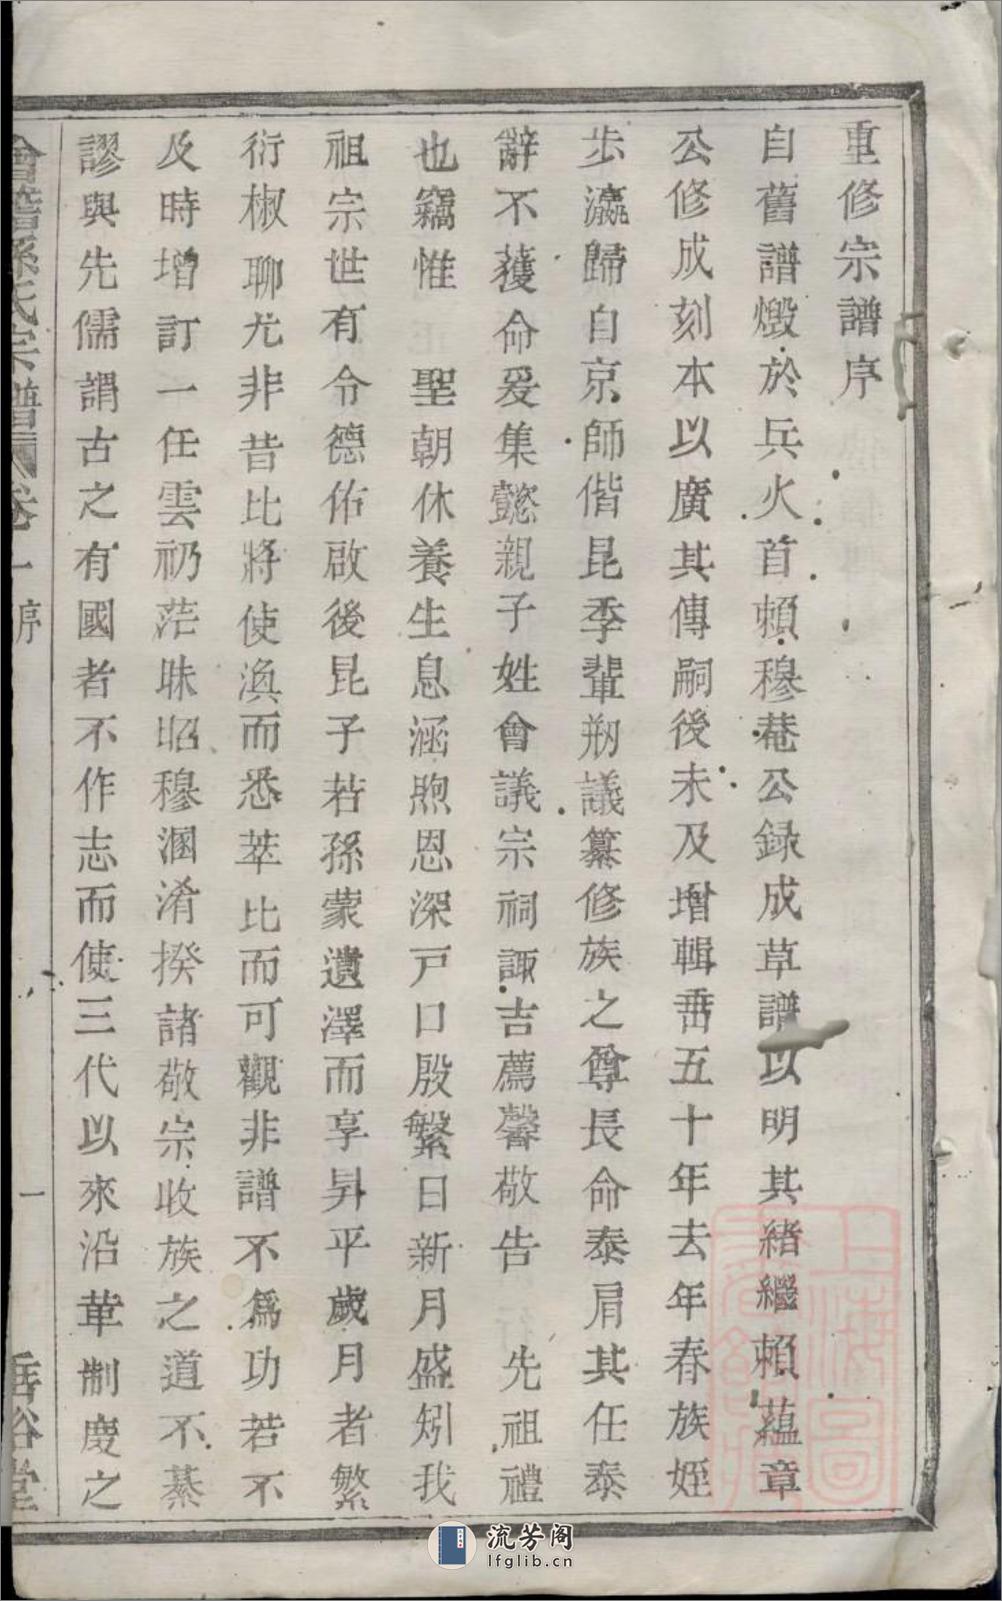 重修宗譜序
自舊譜燬於兵火首賴穆菴公録成草譜以明其緒繼賴蘊章
公修成刻本以廣其傳嗣後未及增輯再五十年去年春族姪
步瀛歸自京師偕昆季輩剏議纂修族之尊長命泰肩其任泰
辭不獲命爰集懿親子姓會議宗祠諏吉薦馨敬告 先祖禮
也竊惟 聖朝休養生息涵煦恩深戸口殷繁日新月盛矧我
祖宗世有令德佑啟後昆子若孫蒙遺澤而享昇平歲月者繁
衍椒聊尤非昔比將使渙而悉萃比而可觀非譜不爲功若不
及時增訂一任雲礽茫昧昭穆溷淆揆諸敬宗收族之道不綦
謬與先儒謂古之有國者不作志而使三代以來沿革制慶之
會稽孫氏宗譜 卷一 序 一 垂裕堂
上海圖書館藏
流芳阁
lfglib.cn